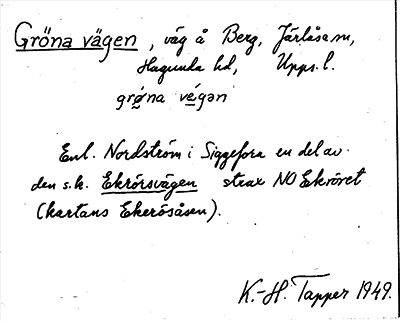 Gröna vägen, väg å Berg, Järlåsa sn,
Hagunda hd, Upps. l.
grö̀na vé̱gən
Enl. Nordström i Siggefora en del av
den s.k. Ekrörsvägen strax NO Ekröret
(kartans Ekerösåsen).
K.-H. Tapper 1949.